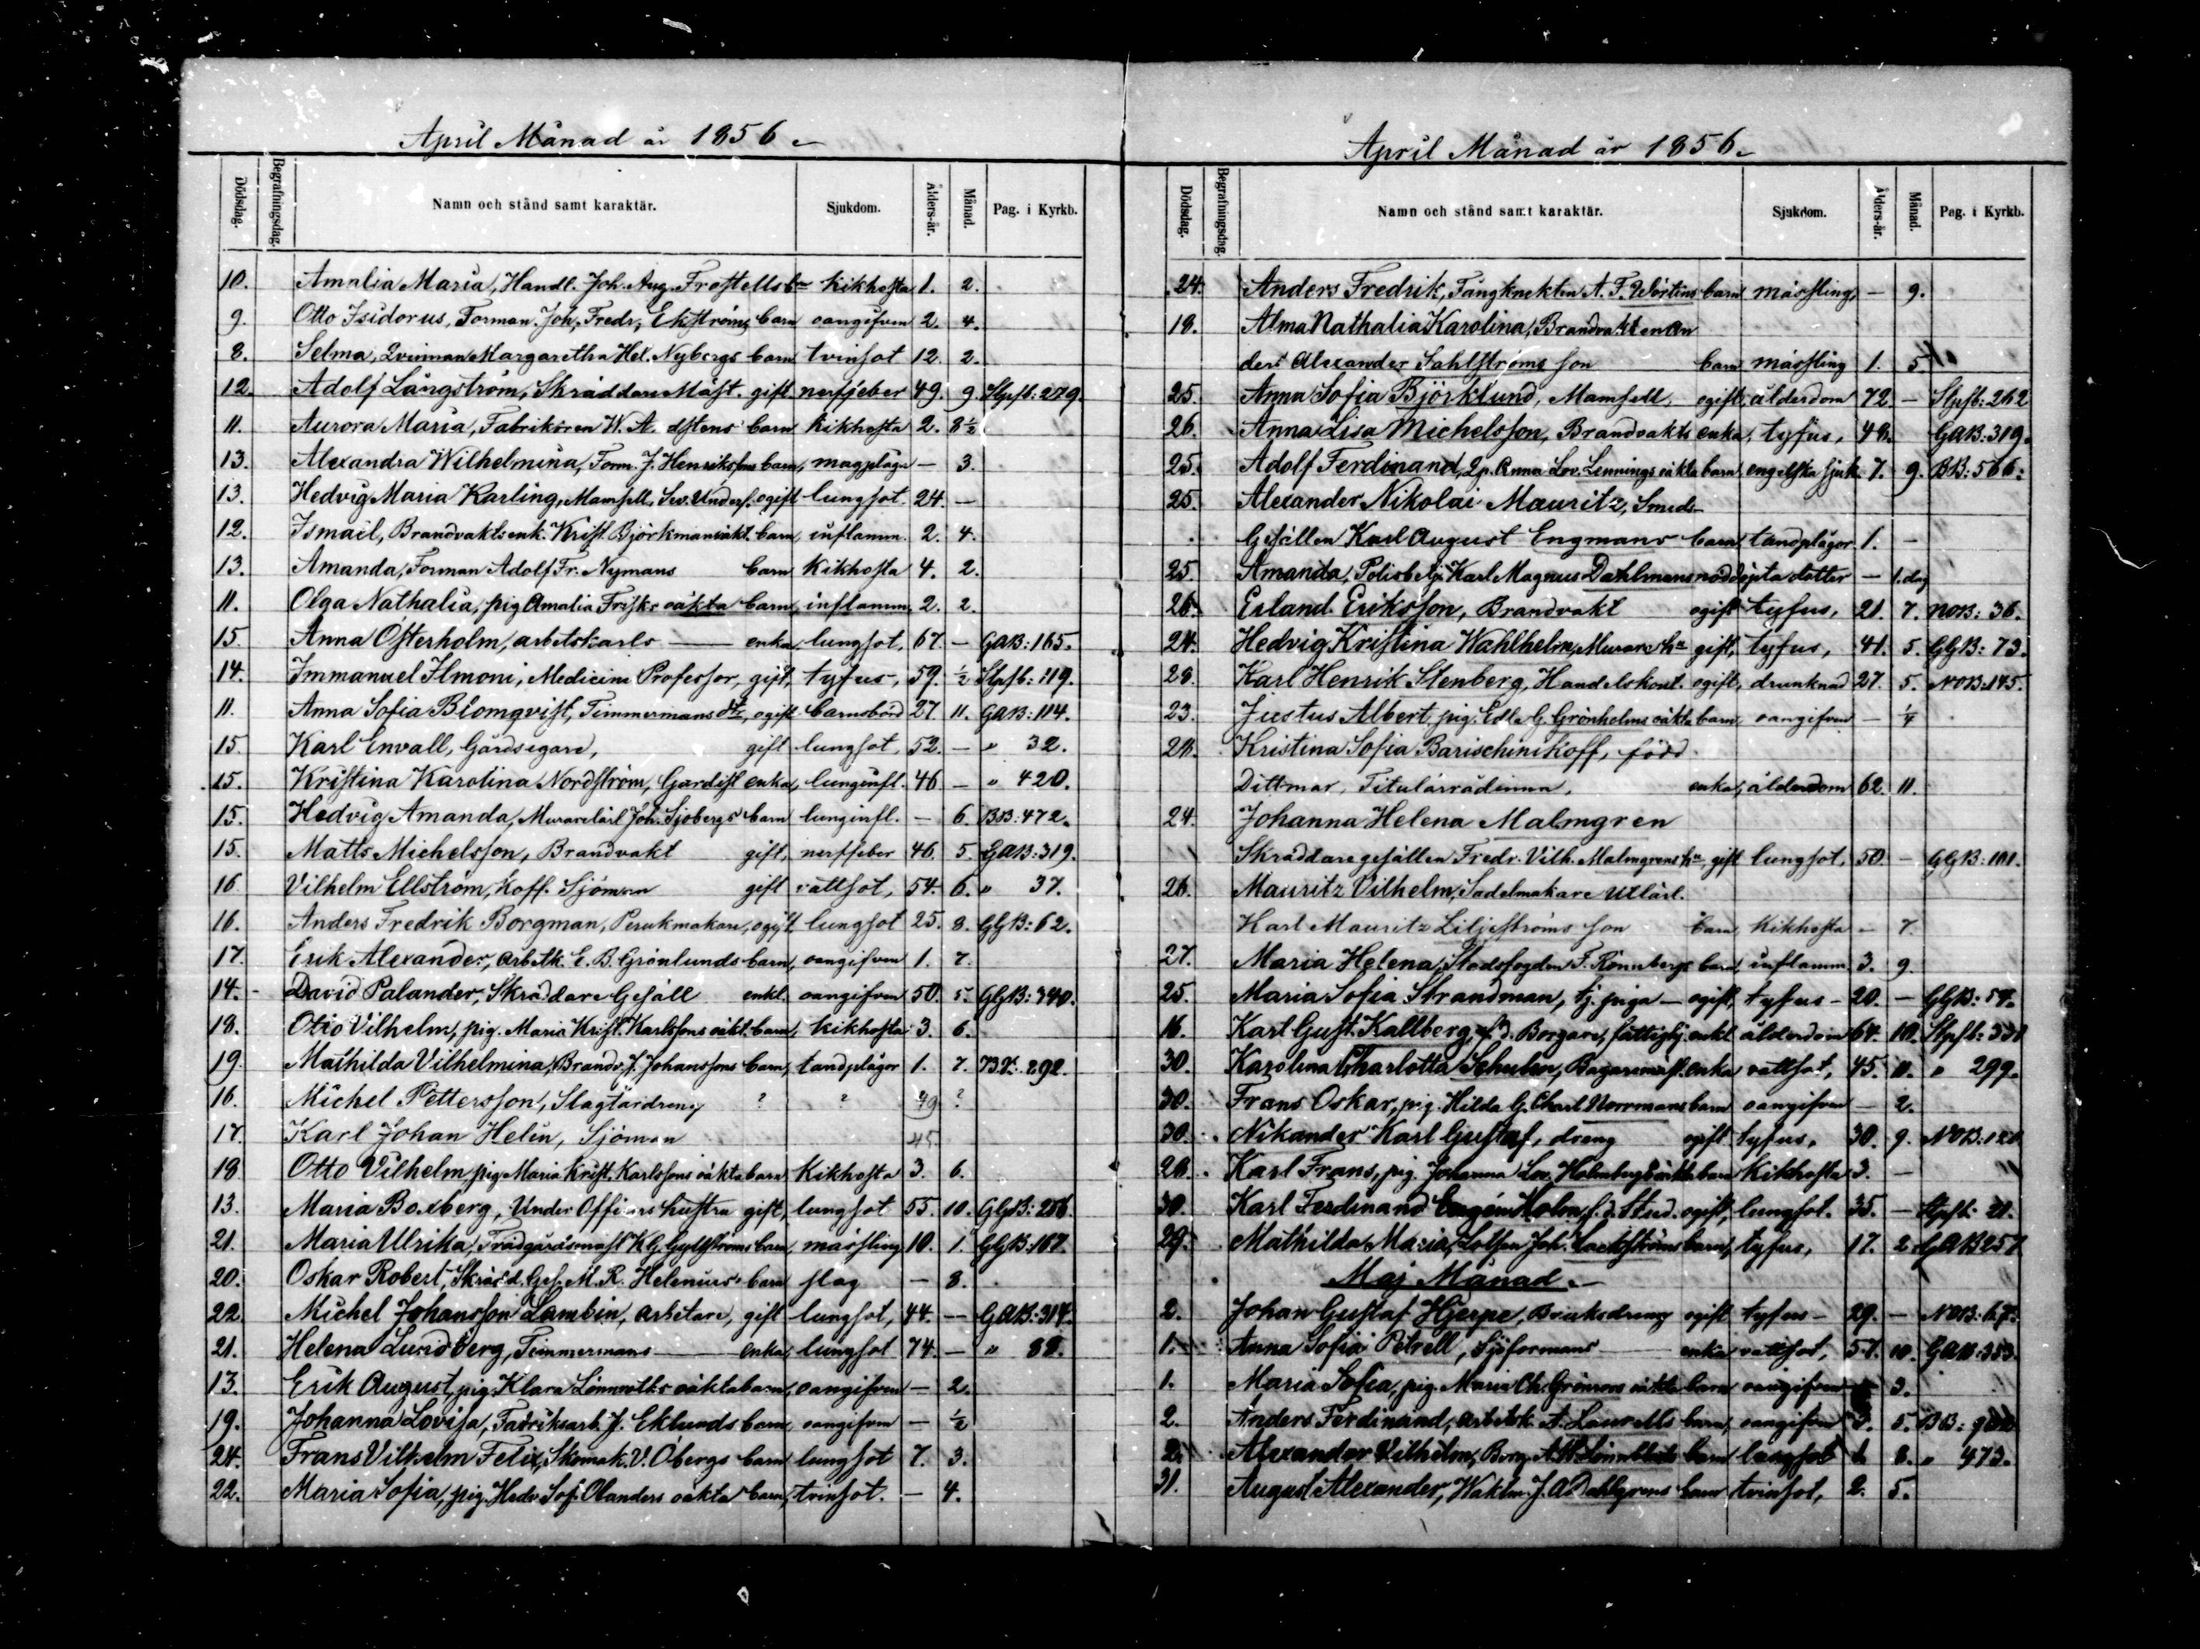 April Månad år 1856
Dödsdag. Begrafningsdag. Namn och stånd samt karaktär. Sjukdom. Ålders-år. Månad. Pag. i Kyrkb.
10. Amalia Maria, Handl. Joh. Aug. Frostells kikhosta 1. 2.
9. Otto Isidorus, Forman Joh. Fredr. Ekströms barn oangifven 2. 4.
8. Selma, Qvinnan Margaretha Hel. Nybergs barn tvinsot 12. 2.
12. Adolf Långström, Skräddare Mäst. gift nerffeber 49. 9. Stpsb: 279.
11. Aurora Maria, Fabrikören W. A. barn kikhosta 2. 8½
13. Alexandra Wilhelmina, Form. J. Henrikssons barn, magplågor — 3.
13. Hedvig Maria Karling, Mamsell, ogift lungsot 24. —
12. Ismael, Brandvaktsenk. Krist. Björkmans oäkt. barn, inflamm. 2. 4.
13. Amanda, Forman Adolf Fr. Nymans barn kikhosta 4. 2.
11. Olga Nathalia, pig. Amalia Frisks oäkta barn, inflamm. 2. 2.
15. Anna Österholm, arbetskarls — enka, lungsot, 67. — GAB: 165.
14. Immanuel Ilmoni, Medicine Professor, gift, tyfus, 59. ½ Stpsb: 119.
11. Anna Sofia Blomqvist, Timmermans dtr, ogift barnsbörd 27. 11. GAB: 114.
15. Karl Envall, Gårdsegare, gift lungsot, 52. — " 32.
15. Kristina Karolina Nordström, Gardist enka, lunginfl. 46 — " 420.
15. Hedvig Amanda, Murarelärl. Joh. Sjöbergs barn lunginfl. — 6. BB: 472.
15. Matts Michelsson, Brandvakt gift, nerffeber 46. 5. GAB: 319.
16 Vilhelm Ellström, Koff. Sjöman gift vattsot, 54. 6. " 37.
16. Anders Fredrik Borgman, Perukmakare, ogift lungsot 25. 8. GGB: 62.
17. Erik Alexander, Arbetk. E. B. Grönlunds barn, oangifven 1. 7.
14. David Palander, Skräddare Gesäll enkl. oangifven 50. 5. GGB: 340.
18. Otto Vilhelm, pig. Maria Krist. Karlssons oäkt. barn, kikhosta 3. 6.
19. Mathilda Vilhelmina, Brandv. J. Johanssons barn, tandplågor 1. 7. 292.
16. Michel Pettersson, Slagtardreng ? ? 49 ?
17. Karl Johan Helin, Sjöman 45
18 Otto Vilhelm, pig. Maria Krist. Karlssons oäkta barn Kikhosta 3. 6.
13. Maria Boxberg, Under Officers hustru gift, lungsot 55. 10. GGB: 256.
21. Maria Ulrika, Trädgårdsmäst. K. G. Gyllströms barn, mässling 10. 1. GGB: 167.
20. Oskar Robert, Skrädd. Ges. M. R. Helenius' barn slag — 8.
22. Michel Johansson Lambin, arbetare, gift lungsot, 44. — GAB: 314.
21. Helena Lundberg, Timmermans — enka, lungsot 74. — " 88.
13. Erik August, pig. Klara Lönnroths oäkta barn, oangifven — 2.
19. Johanna Lovisa, Fabriksarb. J. Eklunds barn, oangifven — ½
24. Frans Vilhelm Felix, Skomak. V. Öbergs barn lungsot 7. 3.
22. Maria Sofia, pig. Hedv. Sof. Olanders oäkta barn, tvinsot. — 4.
April Månad år 1856
Dödsdag. Begrafningsdag. Namn och stånd samt karaktär. Sjukdom. Ålders-år. Månad. Pag. i Kyrkb.
24. Anders Fredrik, Fångknekten A. F. barn mässling, — 9.
18. Alma Nathalia Karolina, Brandvakten An
ders Alexander Sahlströms son barn mässling 1. 5.
25. Anna Sofia Björklund, Mamsell, ogift, ålderdom 72. — Stpsb: 262
26. Anna Lisa Michelsson, Brandvakts enka, tyfus, 48. GAB: 319.
25. Adolf Ferdinand, Qp. Anna Lov. Lennings oäkta barn, engelska sjuk. 7. 9. BB: 566.
25. Alexander Nikolai Mauritz, Smeds-
Gesällen Karl August Engmans barn, tandplågor 1. —
25. Amanda, Karl Magnus Dahlmans nöddöpta dotter — 1. dag
26. Erland Eriksson, Brandvakt ogift tyfus, 21. 7. NOB: 36.
24. Hedvig Kristina Wahlhelm, Murare hu gift, tyfus, 41. 5. GGB: 73.
28. Karl Henrik Stenberg, Handelskont. ogift, drunknad 27. 5. NOB: 145.
23. Justus Albert, pig. Edla G. Grönholms oäkta barn, oangifven — ¼
28. Kristina Sofia Barischinikoff, född
Dittmar, Titulärrådinna, enka, ålderdom 62. 11.
24. Johanna Helena Malmgren
Skräddaregesällen Fredr. Vilh. Malmgrens hu, gift lungsot, 50. — GGB: 101.
26. Mauritz Vilhelm, Sadelmakare Utlärl.
Karl Mauritz Liljeströms son barn Kikhosta — 7
27. Maria Helena, Stadsfogden F. Rönnbergs barn, inflamm. 3. 9.
25. Maria Sofia Strandman, tj. piga — ogift, tyfus — 20. — GGB: 57.
16. Karl Gust. Kallberg, f. d. Borgare, fattighj. enkl. ålderdom 64. 10. Stpsb: 331
30. Karolina Charlotta Schulen, enka vattsot, 45. 11. " 299.
30. Frans Oskar, pig. Hilda G. Charl. Norrmans barn oangifven — 2.
30. Nikander Karl Gustaf, dreng ogift tyfus, 30. 9. NOB: 120
26. Karl Frans, pig. Johanna Lov. Holmbergs oäkta barn Kikhosta 3. —
30. Karl Ferdinand Eugén Holm, f. d. Stud. ogift, lungsot. 35. — Stpsb: 21.
29. Mathilda Maria, Lotsen Joh. barn, tyfus, 17. 2 GAB 257
Maj Månad.
2. Johan Gustaf Hjerpe, Bruksdreng ogift tyfus — 29. — NOB: 67.
1. Anna Sofia Petrell, Sjöformans enka vattsot, 57. 10. GAB: 353.
1. Maria Sofia, pig. Maria Ch. Grönroos oäkta barn oangifven 3.
2. Anders Ferdinand, arbetsk. A. Laurells barn, oangifven 5. BB:
2. Alexander Vilhelm, barn lungsot 1. 8. " 473.
31. August Alexander, Waktm. J. A. Dahlgrens barn tvinsot, 2. 5.